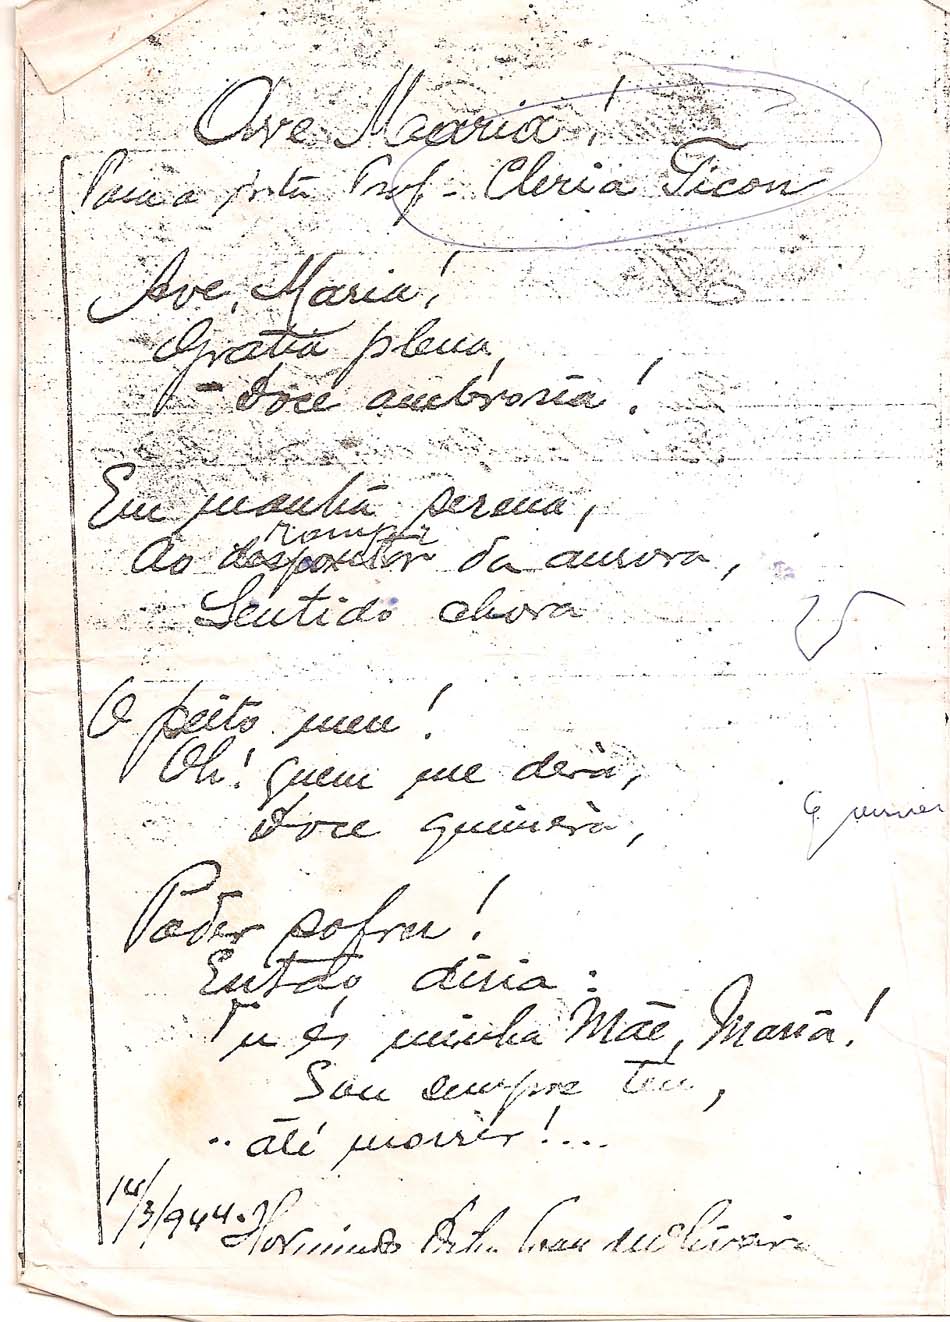 Ave Maria!
Para a Prof. Cleria Ticon
Ave, Maria!
Gratia plena,
- Doce ambrosia!
Em manhã serena,
romper
Ao despontar da aurora,
Sentido chora
O peito meu!
Oh! quem me dera,
Doce quimera,
Poder sofrer!
Então diria:
Tu és minha Mãe, Maria!
Sou sempre teu,
.. até morrer!...
14/3/944. de Oliveira